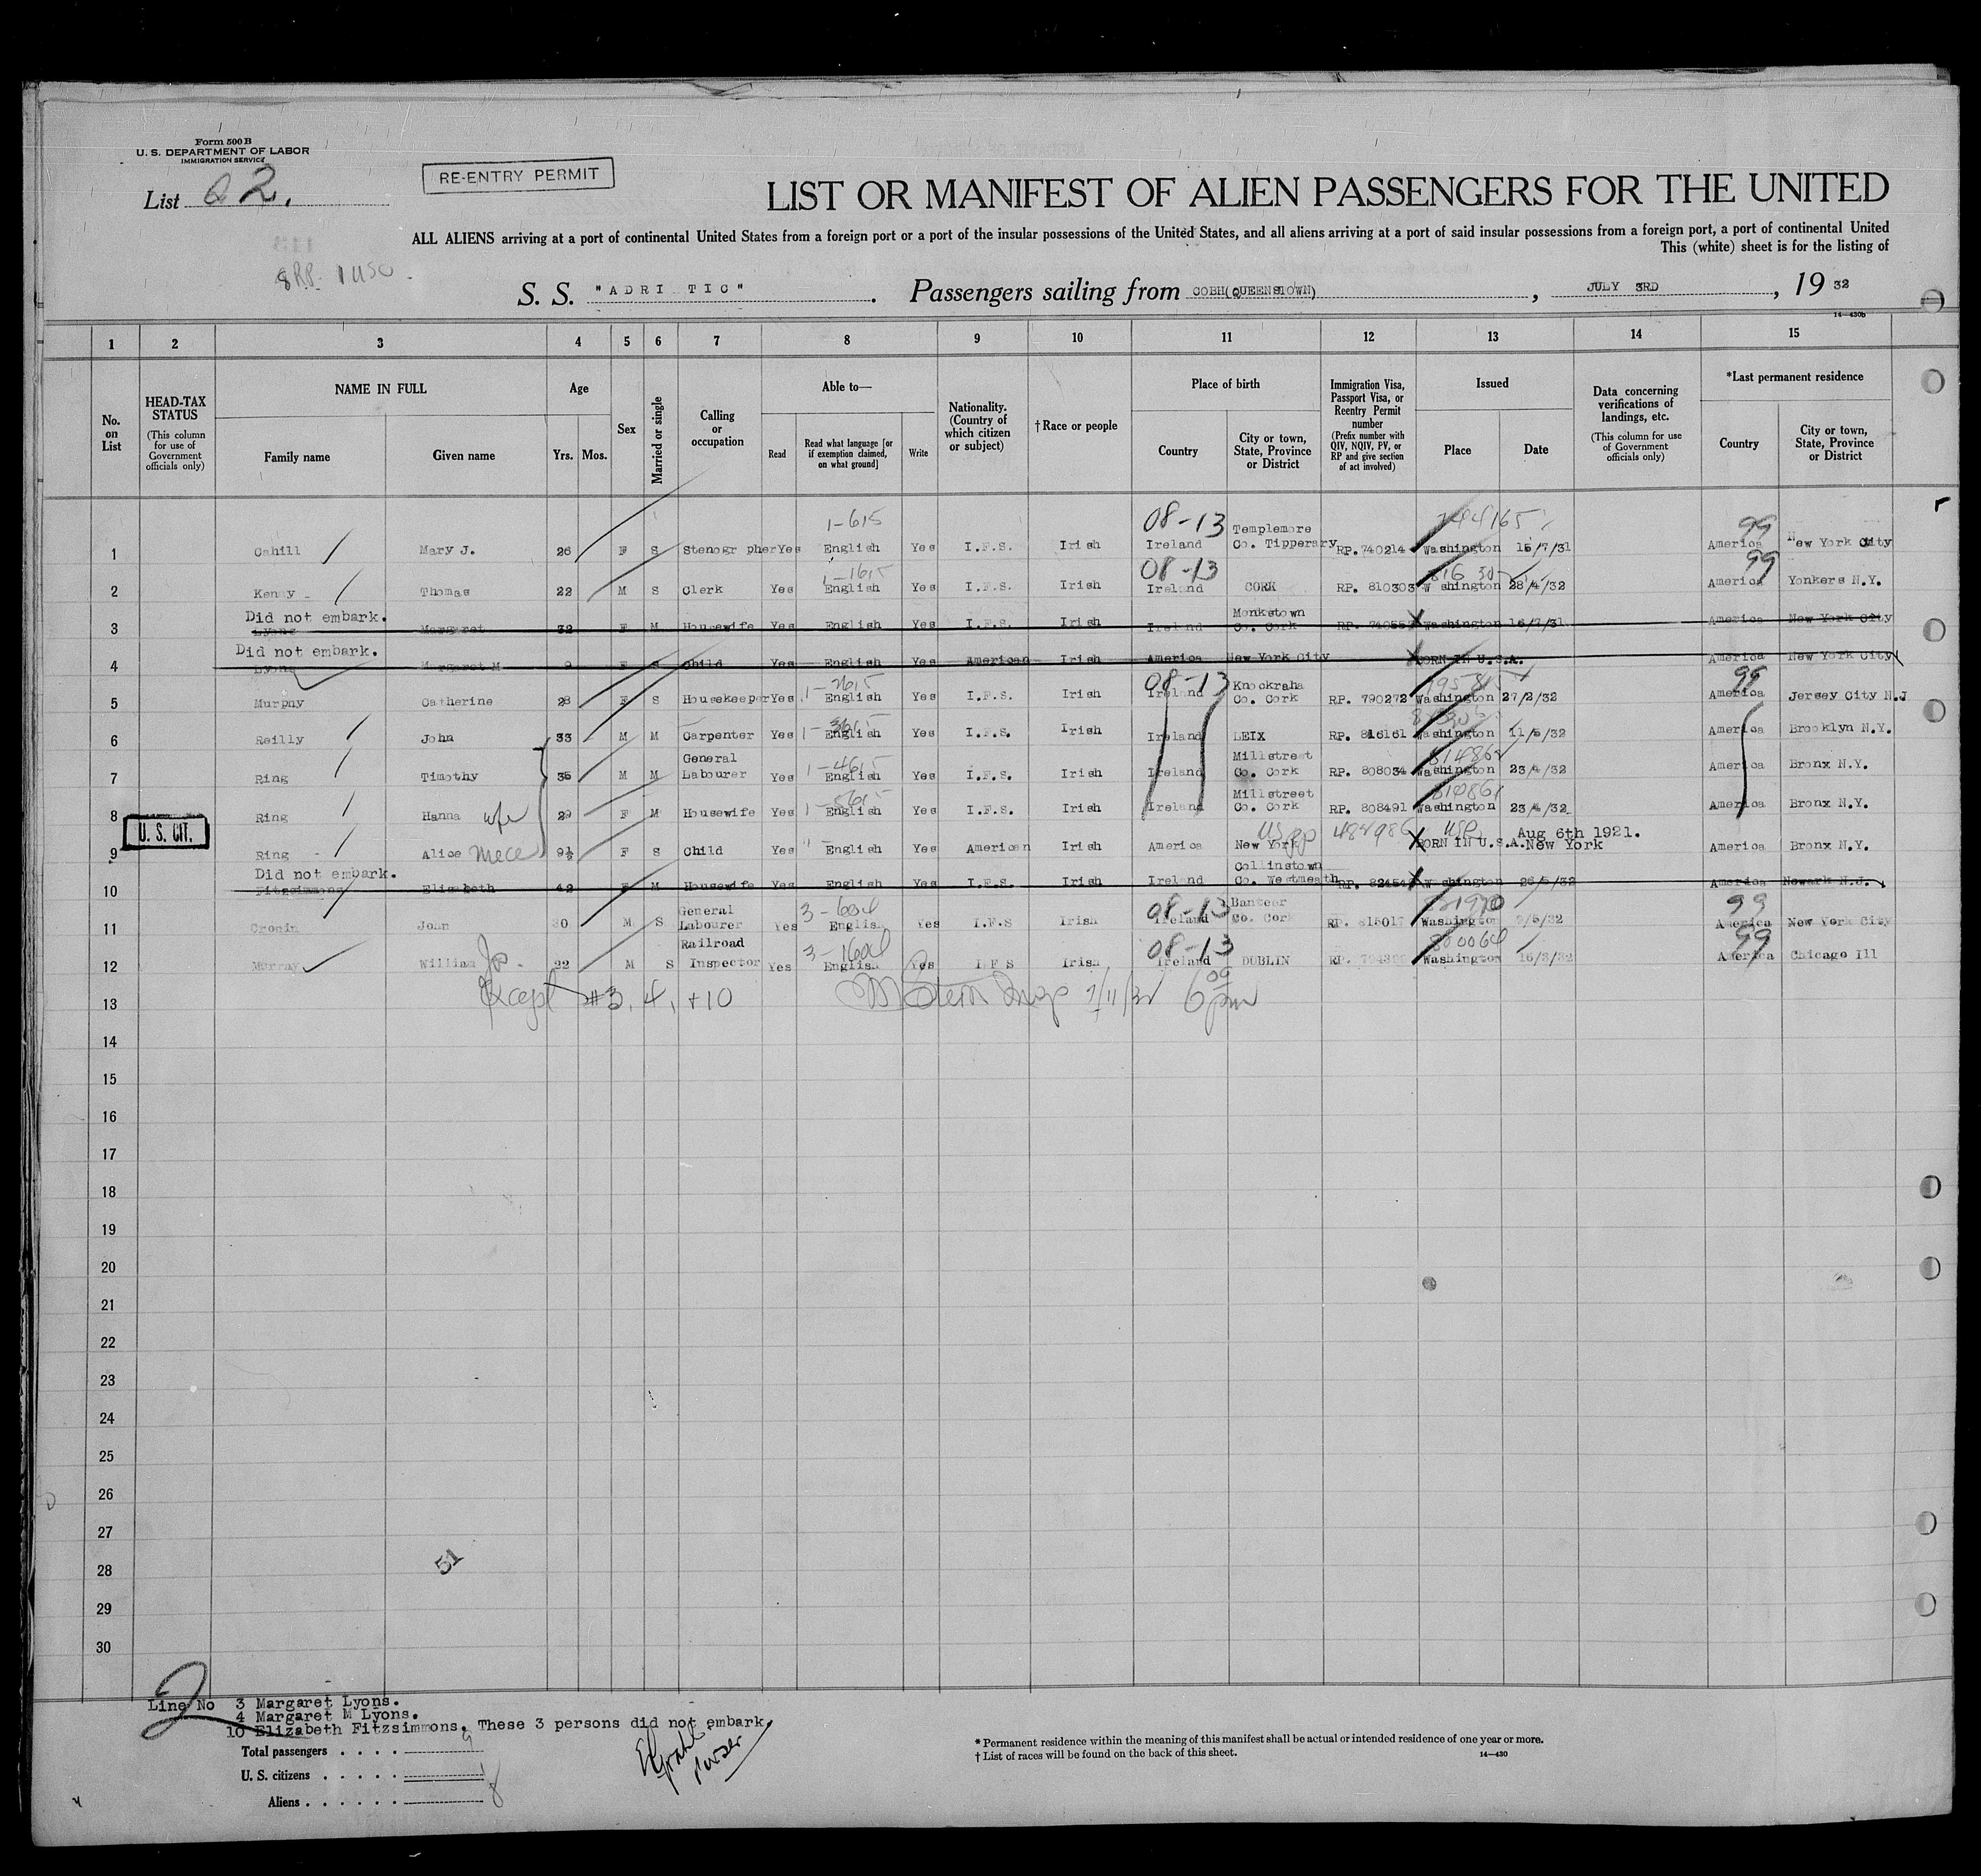 Form 500 B
U. S. DEPARTMENT OF LABOR
IMMIGRATION SERVICE
List 2.
RE-ENTRY PERMIT
LIST OR MANIFEST OF ALIEN PASSENGERS FOR THE UNITED
ALL ALIENS arriving at a port of continental United States from a foreign port or a port of the insular possessions of the United States, and all aliens arriving at a port of said insular possessions from a foreign port, a port of continental United
This (white) sheet is for the listing of
8 RP. 1 USC
S. S. "ADRI TIC". Passengers sailing from COBH(QUEENSTOWN), JULY 3RD, 1932
14-430b
1 2 3 4 5 6 7 8 9 10 11 12 13 14 15
No. on List
HEAD-TAX STATUS (This column for use of Government officials only)
NAME IN FULL Family name Given name
Age Yrs. Mos.
Sex
Married or single
Calling or occupation
Able to— Read Read what language [or if exemption claimed, on what ground] Write
Nationality. (Country of which citizen or subject)
†Race or people
Place of birth Country City or town, State, Province or District
Immigration Visa, Passport Visa, or Reentry Permit number (Prefix number with QIV, NQIV, PV, or RP and give section of act involved)
Issued Place Date
Data concerning verifications of landings, etc. (This column for use of Government officials only)
*Last permanent residence Country City or town, State, Province or District
1-615 08-13 Templemore 99
1 Cahill Mary J. 26 F S Stenogr pher Yes English Yes I.F.S. Irish Ireland Co. Tipperary RP. 740214 Washington 15/7/31 America New York City
1-1615 08-13 99
2 Kenny Thomas 22 M S Clerk Yes English Yes I.F.S. Irish Ireland CORK RP. 810303 W shington 28/4/32 America Yonkers N.Y.
Did not embark. Monkstown
3 Lyons Margaret 32 F M Housewife Yes English Yes I.F.S. Irish Ireland Co. Cork Washington 16/7/31 America New York City
Did not embark.
4 Lyons Margaret M 9 F S Child Yes English Yes American Irish America New York City BORN IN U.S.A. America New York City
1-2615 08-13 Knockraha 99
5 Murphy Catherine 28 F S Housekeeper Yes English Yes I.F.S. Irish Ireland Co. Cork RP. 790272 Washington 27/2/32 America Jersey City N.J
1-3615
6 Reilly John 33 M M Carpenter Yes English Yes I.F.S. Irish Ireland LEIX RP. 816161 Washington 11/5/32 America Brooklyn N.Y.
General 1-4615 Millstreet
7 Ring Timothy 35 M M Labourer Yes English Yes I.F.S. Irish Ireland Co. Cork RP. 808034 Washington 23/4/32 America Bronx N.Y.
1-5615 Millstreet 810861
8 Ring Hanna wife 29 F M Housewife Yes English Yes I.F.S. Irish Ireland Co. Cork RP. 808491 Washington 23/4/32 America Bronx N.Y.
U. S. CIT. US pp 484986 Aug 6th 1921.
9 Ring Alice niece 9½ F S Child Yes English Yes American Irish America New York BORN IN U.S.A. New York America Bronx N.Y.
Did not embark. Collinstown
10 Fitzsimmons Elisabeth 42 F M Housewife Yes English Yes I.F.S. Irish Ireland Co. Westmeath Washington 26/5/32 America Newark N.J.
General 3-604 08-13 Banteer 99
11 Cronin John 30 M S Labourer Yes English Yes I.F.S Irish Ireland Co. Cork RP. 815017 Washington /5/32 America New York City
Railroad 3-1604 08-13 800064 99
12 Murray William Jos. 22 M S Inspector Yes English Yes I F S Irish Ireland DUBLIN RP. Washington 16/3/32 America Chicago Ill
13 Except #3, 4, +10 Insp 7/11/32 6 09 pm
14
15
16
17
18
19
20
21
22
23
24
25
26
27
28
29
30
51
2
Line No 3 Margaret Lyons.
4 Margaret M Lyons.
10 Elizabeth Fitzsimmons. These 3 persons did not embark.
Total passengers . . . . 9
U. S. citizens . . . . . 1
Aliens . . . . . . 8
Purser
* Permanent residence within the meaning of this manifest shall be actual or intended residence of one year or more.
† List of races will be found on the back of this sheet. 14—430